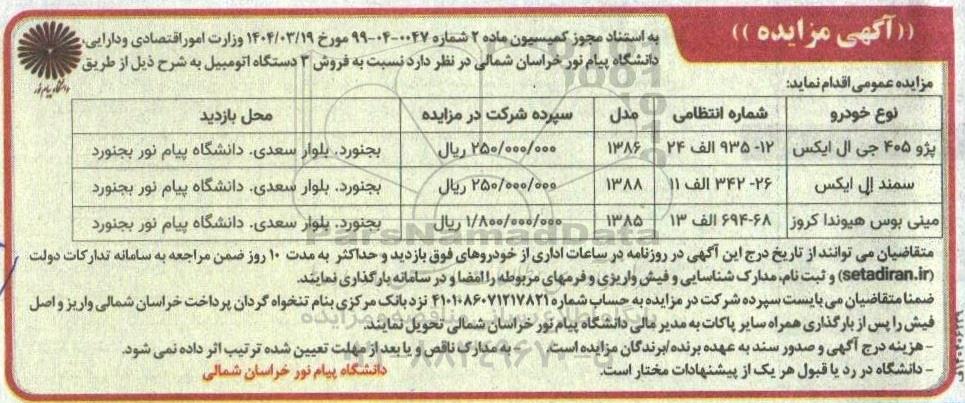 ((آگهی مزایده))
به استناد مجوز کمیسیون ماده ۲ شماره ۰۰۴۷-۰۴-۹۹ مورخ ۱۴۰۴/۰۳/۱۹ وزارت امور اقتصادی و دارایی،
دانشگاه پیام نور خراسان شمالی در نظر دارد نسبت به فروش ۳ دستگاه اتومبیل به شرح ذیل از طریق
مزایده عمومی اقدام نماید:
دانشگاه پیام نور
نوع خودرو شماره انتظامی مدل سپرده شرکت در مزایده محل بازدید
پژو ۴۰۵ جی ال ایکس ۱۲- ۹۳۵ الف ۲۴ ۱۳۸۶ ۲۵۰/۰۰۰/۰۰۰ ریال بجنورد. بلوار سعدی. دانشگاه پیام نور بجنورد
سمند ال ایکس ۲۶- ۳۴۲ الف ۱۱ ۱۳۸۸ ۲۵۰/۰۰۰/۰۰۰ ریال بجنورد. بلوار سعدی. دانشگاه پیام نور بجنورد
مینی بوس هیوندا کروز ۶۸-۶۹۴ الف ۱۳ ۱۳۸۵ ۱/۸۰۰/۰۰۰/۰۰۰ ریال بجنورد. بلوار سعدی. دانشگاه پیام نور بجنورد
متقاضیان می توانند از تاریخ درج این آگهی در روزنامه در ساعات اداری از خودروهای فوق بازدید و حداکثر به مدت ۱۰ روز ضمن مراجعه به سامانه تدارکات دولت
(setadiran.ir) و ثبت نام، مدارک شناسایی و فیش واریزی و فرمهای مربوطه را امضا و در سامانه بارگذاری نمایند.
ضمنا متقاضیان می بایست سپرده شرکت در مزایده به حساب شماره ۴۱۰۱۰۸۶۰۷۱۲۱۷۸۲۱ نزد بانک مرکزی بنام تنخواه گردان پرداخت خراسان شمالی واریز و اصل
فیش را پس از بارگذاری همراه سایر پاکات به مدیر مالی دانشگاه پیام نور خراسان شمالی تحویل نمایند.
- هزینه درج آگهی و صدور سند به عهده برنده/برندگان مزایده است. - به مدارک ناقص و یا بعد از مهلت تعیین شده ترتیب اثر داده نمی شود.
- دانشگاه در رد یا قبول هر یک از پیشنهادات مختار است.
دانشگاه پیام نور خراسان شمالی
ParsNamadData
پایگاه اطلاع رسانی مناقصه و مزایده